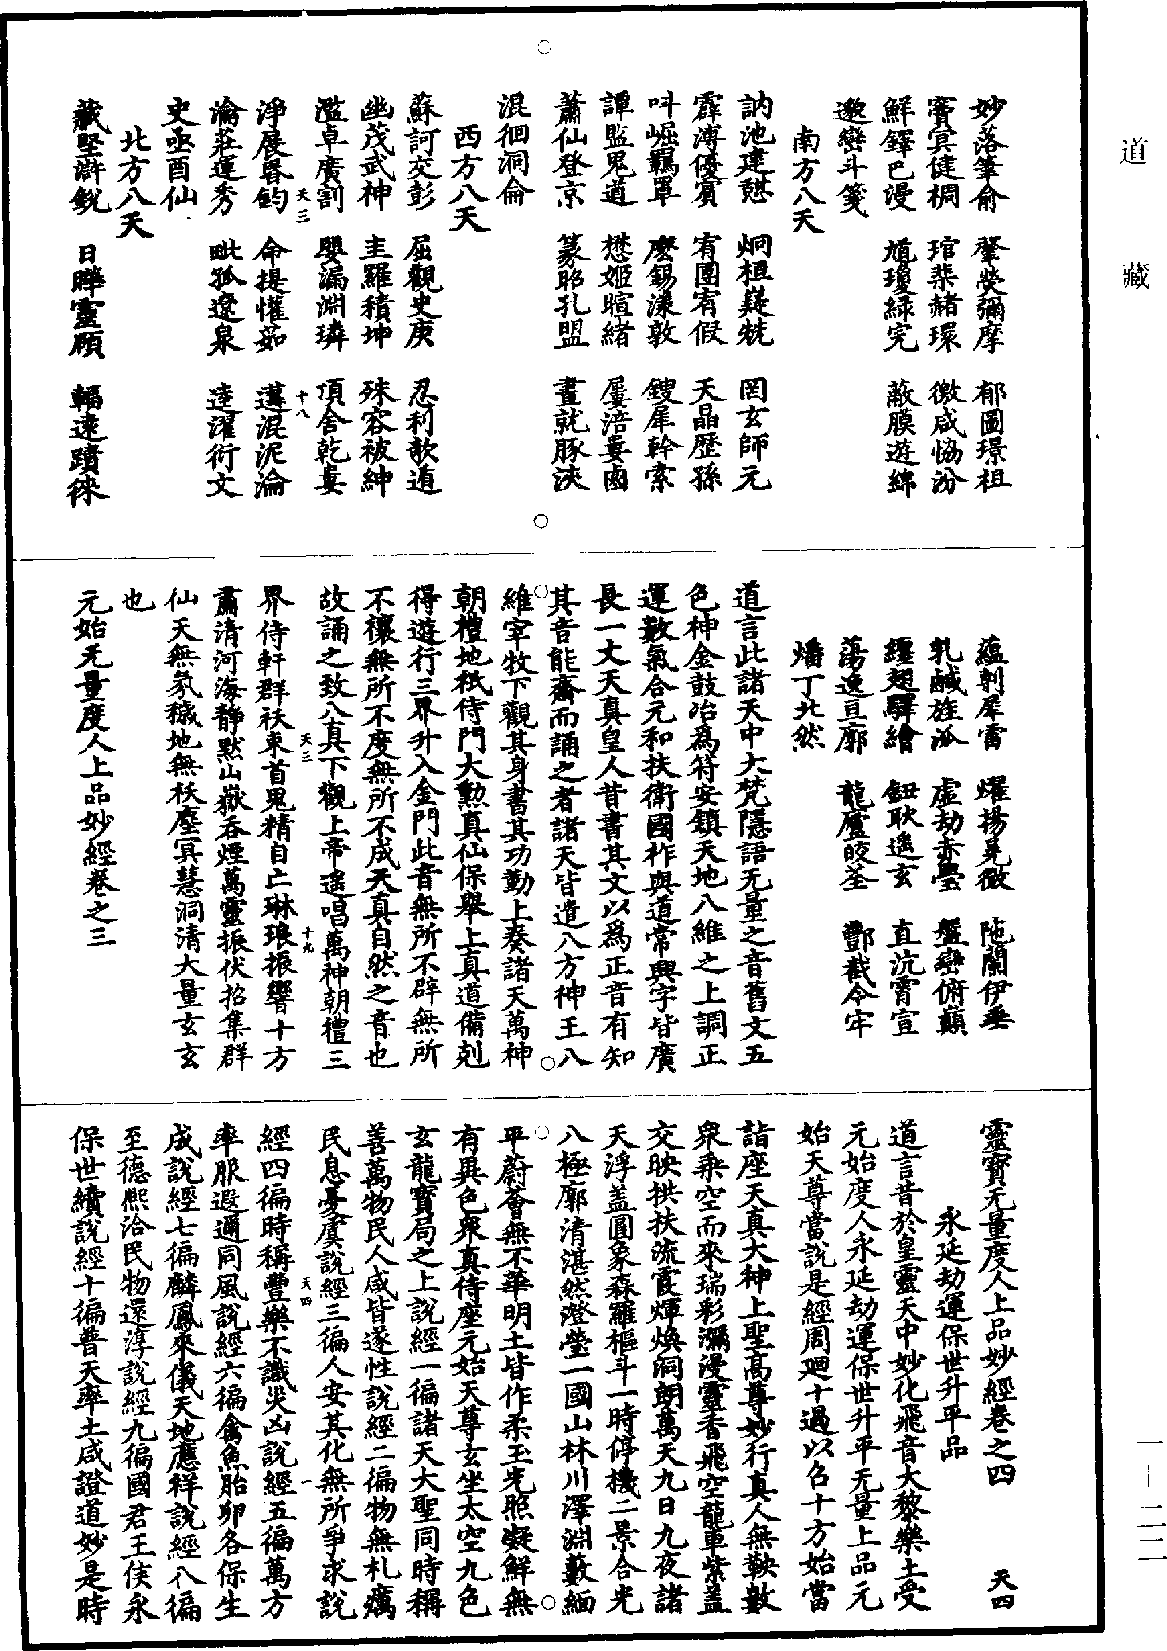 道藏
妙落筆俞　肇熒彌摩　郁圖璟祖
賷冥健椆　琯棐赭環　徵咸恊汾
鮮鐸巴漫　馗瓊綠完　蔽膜遊綿
邀巒斗箋
南方八天
訥池建憇　炯柤嶷兟　罔玄師元
霹溥優賔　宥團宥假　天晶歷孫
呌崛羈罩　麼錫漾敦　鎪犀幹索
譚監鬼道　懋姬暄緒　屢涪婁囱
蕭仙登京　篆昭孔盟　晝就豚浹
混徊洞侖
西方八天
蘇訶交彭　屈觀史庚　忍利歌逌
幽茂武神　圭羅積坤　殊容被紳
濫卓廣割　嬰漏淵璘　頂舍乾婁
天三　十八
淨展昏鈞　命提懽茹　遘混泥淪
瀹莊運秀　毗孤遼泉　逵濯衍文
史亟酉仙
北方八天
藏堅漭銳　日曄靈願　輻逺蹟徠
蘊剌犀雷　燿揚晃徵　阤蘭伊垂
乳鹹旌泒　虚劫赤曇　盤巒俯巔
纒翅驛繪　鈕耿遥玄　直沆霄宣
蕩逸亘廓　龍廬皎荃　酆截令牢
燔丁北然
道言此諸天中大梵隱語无量之音舊文五
色神金鼓冶爲符安鎮天地八維之上調正
運數氣合元和扶衛國祚與道常興字皆廣
長一丈天真皇人昔書其文以爲正音有知
其音能齋而誦之者諸天皆遣八方神王八
維宰牧下觀其身書其功勤上奏諸天萬神
朝禮地祇侍門大勲真仙保舉上真道備剋
得遊行三界升入金門此音無所不辟無所
不禳無所不度無所不成天真自然之音也
故誦之致八真下觀上帝遥唱萬神朝禮三
天三　十九
界侍軒群祅束首鬼精自亡琳琅振響十方
肅清河海静黙山嶽吞煙萬靈振伏招集群
仙天無氛穢地無袄塵冥慧洞清大量玄玄
也
元始无量度人上品妙經卷之三
靈寶无量度人上品妙經卷之四　天四
永延劫運保世升平品
道言昔於皇靈天中妙化飛音大黎樂土受
元始度人永延劫運保世升平无量上品元
始天尊當說是經周廻十過以召十方始當
詣座天真大神上聖高尊妙行真人無鞅數
衆乘空而來瑞彩瀰漫靈香飛空龍車紫蓋
交映拱扶流霞煇煥洞朗萬天九日九夜諸
天浮蓋圓象森羅樞斗一時停機二景合光
八極廓清湛然澄瑩一國山林川澤淵藪緬
平蔚薈無不華明土皆作柔玉光照凝鮮無
有異色衆真侍座元始天尊玄坐太空九色
玄龍寳局之上說經一徧諸天大聖同時稱
善萬物民人咸皆遂性說經二徧物無札癘
民息憂虞說經三徧人安其化無所爭求說
天四　一
經四徧時稱豐樂不識災凶說經五徧萬方
率服遐邇同風說經六徧禽魚胎卵各保生
成說經七徧麟鳳來儀天地應祥說經八徧
至德熙洽民物還淳說經九徧國君王侯永
保世續說經十徧普天率土咸證道妙是時
一—二二